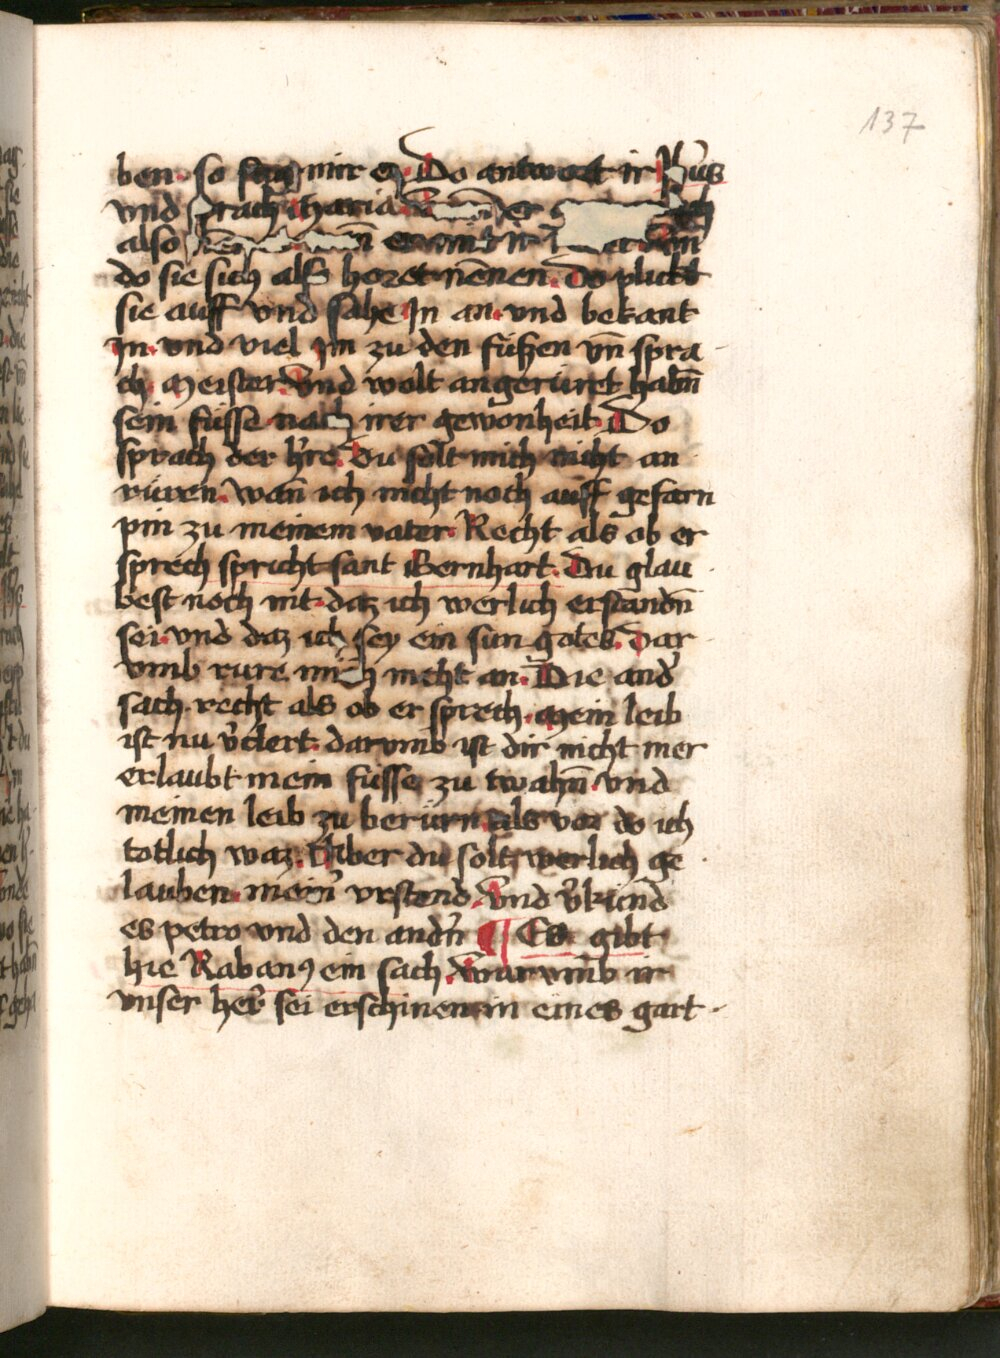 137
ben. so sag mir es. Do antwort ir Jhūs
vnd sprach Maria. er
also er mit ir
do sie sich alß horet nēnen. do plickt
sie auff vnd sahe In an. vnd bekant
In. vnd viel Im zu den füßen vn̄ spra
ch Meister. vnd wolt angerüret habn̄
sein füsse nach irer gewonheit. Do
sprach der h're. Du solt mich nicht an
rüren. wan̄ ich nicht noch auff gefarn
pin zu meinem vater. Recht als ob er
sprech spricht sant Bernhart. Du glau
best noch nit. daz ich werlich erstandn̄
sei. vnd daz ich sey ein sun gotes. Dar
vmb rure mich nicht an. Die and'
sach. recht als ob er sprech. Mein leib
ist nu v'clert. darvmb ist dir nicht mer
erlaubt mein füsse zu twahn̄. vnd
meinen leib zu berürn als vor do ich
totlich waz. Aber du solt werlich ge
lauben. mein' vrstend. Vnd v'künd
es petro vnd den andn' ¶ Es gibt
hie Raban9 ein sach. warvmb ir
vnser her' sei erschinen in eines gart